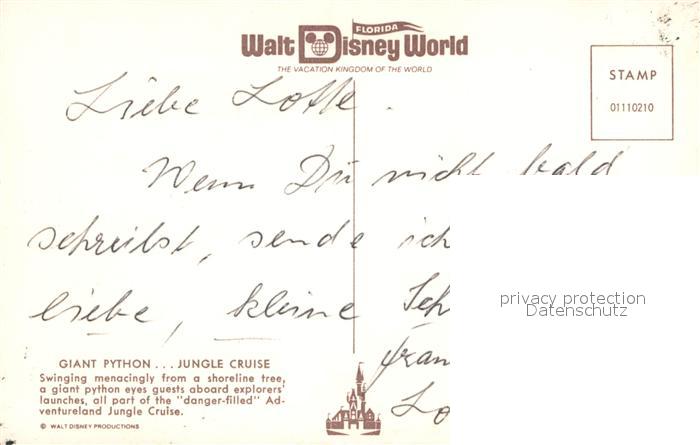 Walt Disney World
FLORIDA
THE VACATION KINGDOM OF THE WORLD
STAMP
01110210
Liebe Lotte.
Wenn Du nicht bald
schreibst, sende ich
liebe, kleine Sch
fran
Lo
privacy protection
Datenschutz
GIANT PYTHON . . . JUNGLE CRUISE
Swinging menacingly from a shoreline tree,
a giant python eyes guests aboard explorers'
launches, all part of the "danger-filled" Ad-
ventureland Jungle Cruise.
© WALT DISNEY PRODUCTIONS